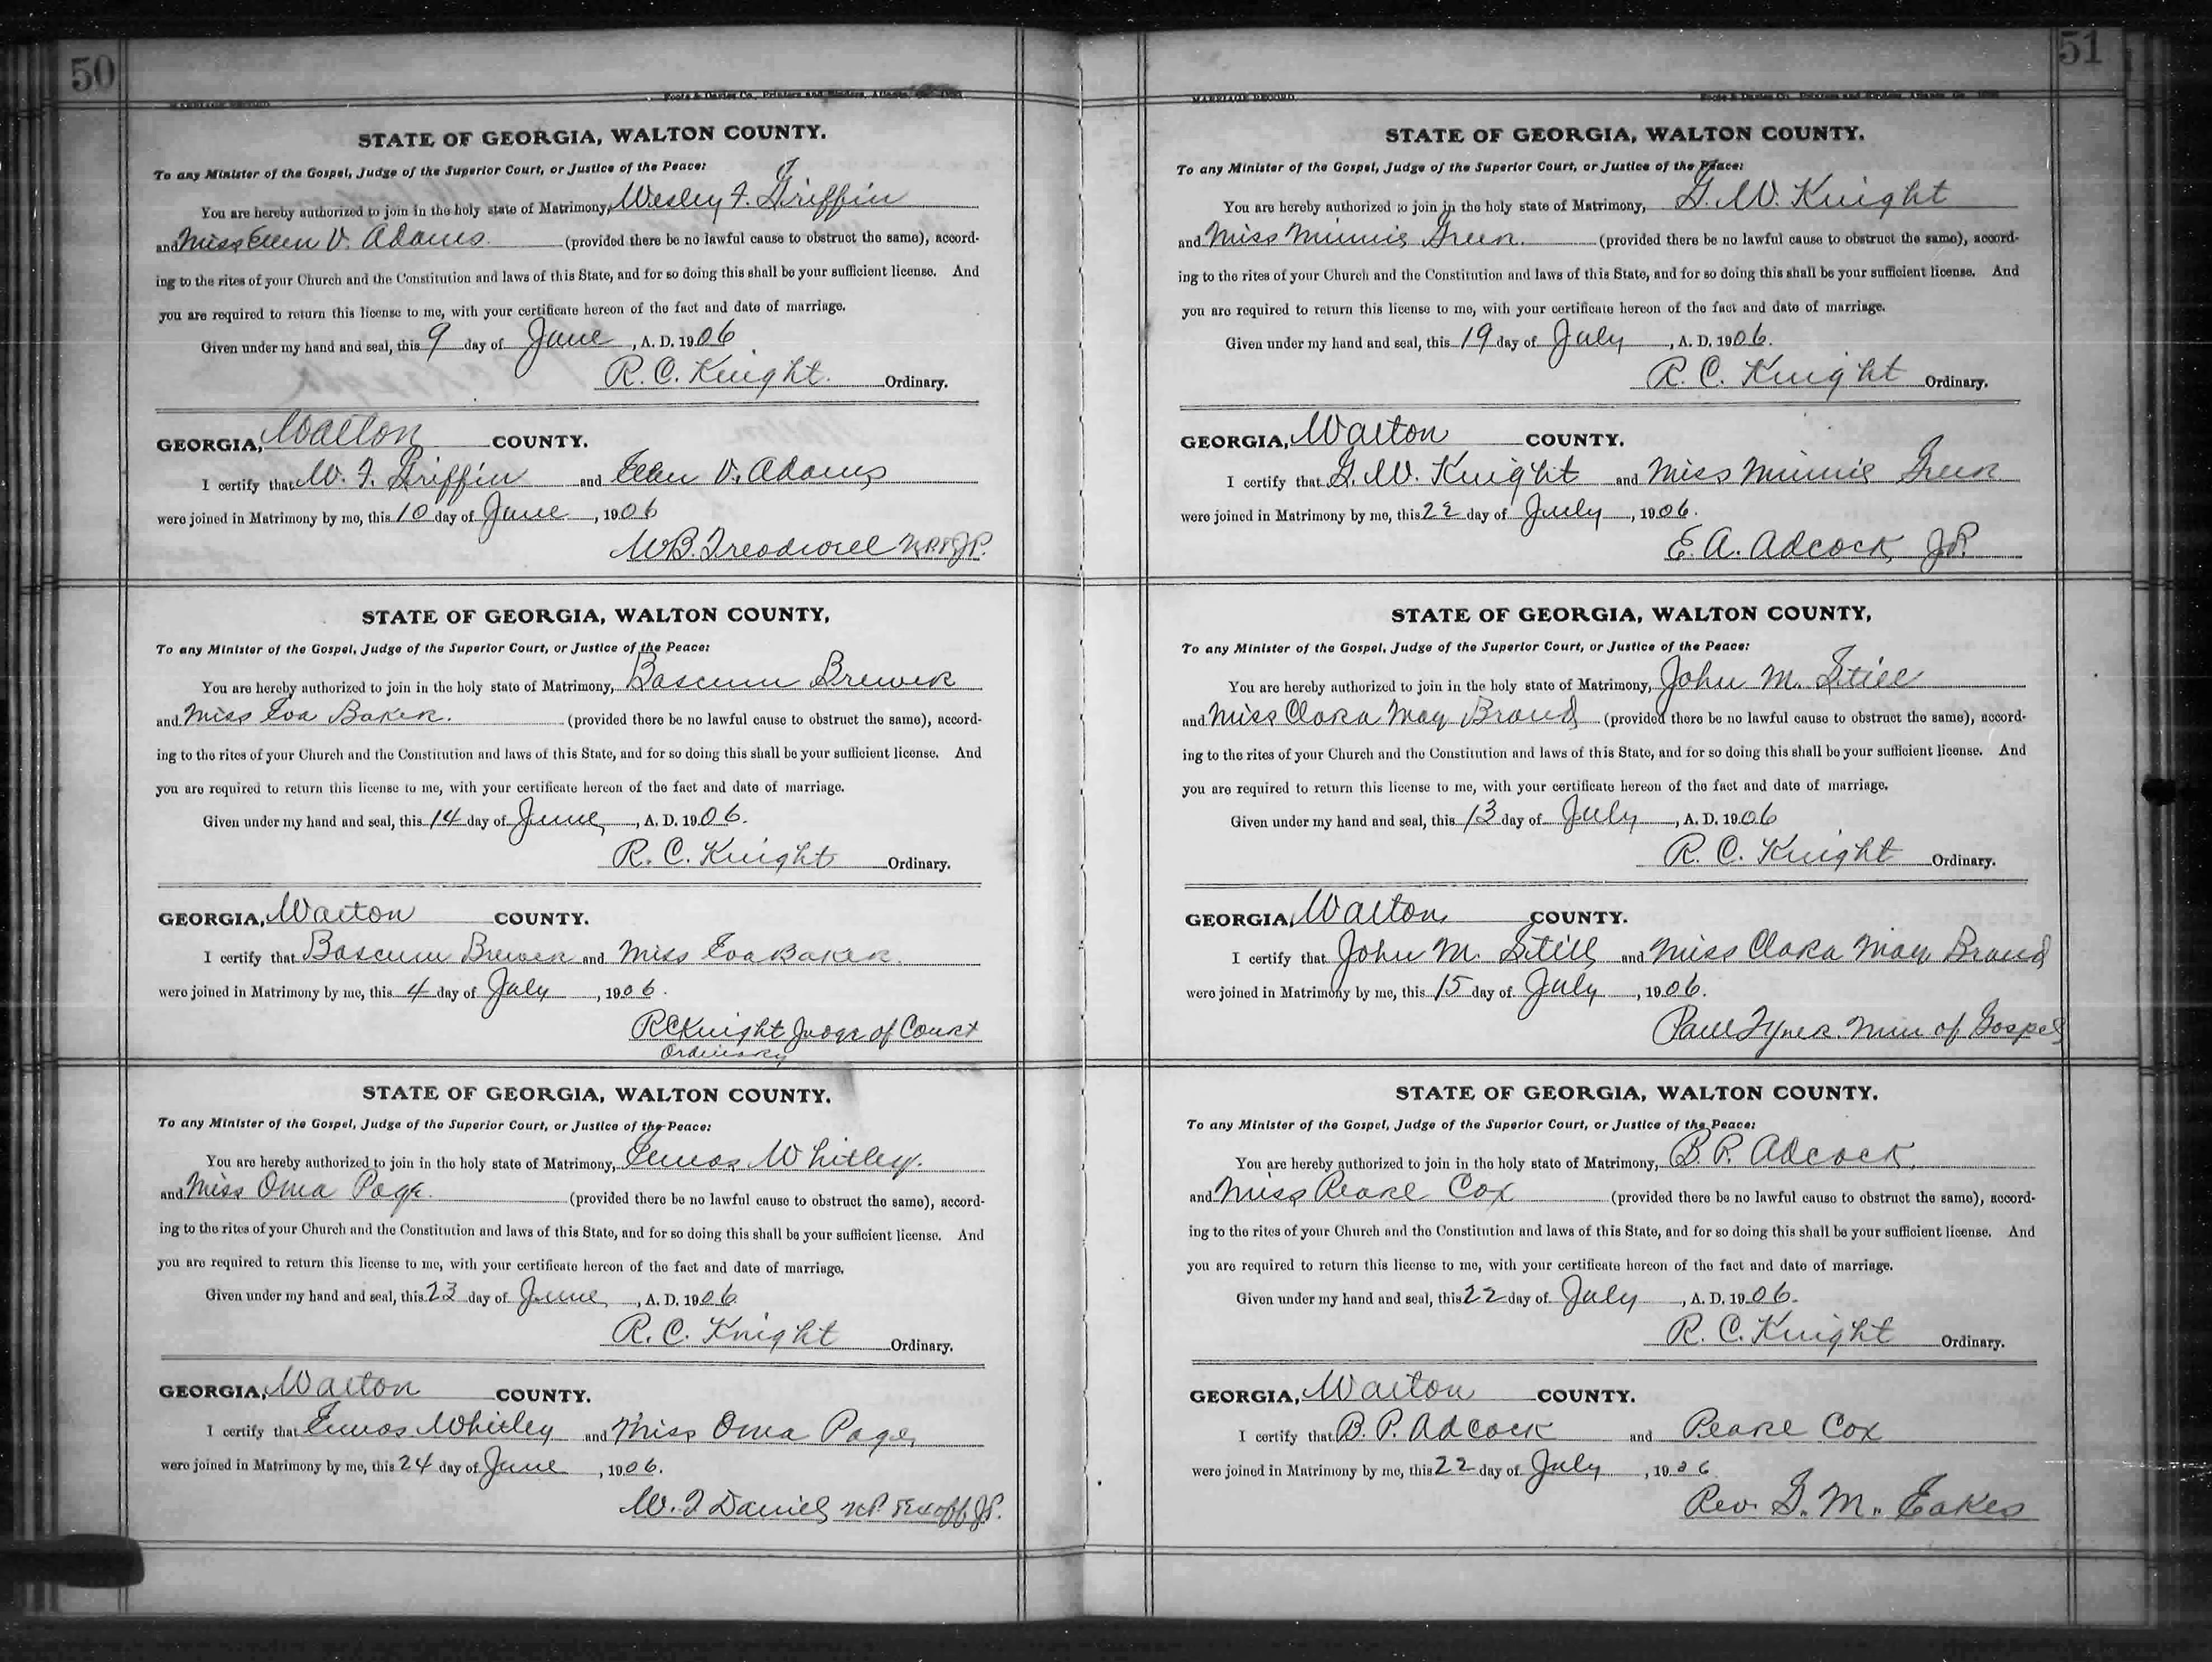 50
MARRIAGE RECORD
Foote & Davies Co., Printers and Binders, Atlanta,
STATE OF GEORGIA, WALTON COUNTY.
To any Minister of the Gospel, Judge of the Superior Court, or Justice of the Peace:
You are hereby authorized to join in the holy state of Matrimony, Wesley F. Griffin
and Miss Ellen V. Adams. (provided there be no lawful cause to obstruct the same), accord-
ing to the rites of your Church and the Constitution and laws of this State, and for so doing this shall be your sufficient license. And
you are required to return this license to me, with your certificate hereon of the fact and date of marriage.
Given under my hand and seal, this 9 day of June, A. D. 1906
R. C. Knight. Ordinary.
GEORGIA, Walton COUNTY.
I certify that W. F. Griffin and Ellen V. Adams
were joined in Matrimony by me, this 10 day of June, 1906
W.B. Treadwell J.P.
STATE OF GEORGIA, WALTON COUNTY,
To any Minister of the Gospel, Judge of the Superior Court, or Justice of the Peace:
You are hereby authorized to join in the holy state of Matrimony, Bascum Brewer
and Miss Eva Baker. (provided there be no lawful cause to obstruct the same), accord-
ing to the rites of your Church and the Constitution and laws of this State, and for so doing this shall be your sufficient license. And
you are required to return this license to me, with your certificate hereon of the fact and date of marriage.
Given under my hand and seal, this 14 day of June, A. D. 1906.
R. C. Knight Ordinary.
GEORGIA, Walton COUNTY.
I certify that Bascum Brewer and Miss Eva Baker.
were joined in Matrimony by me, this 4 day of July, 1906.
R C Knight Judge of Court
Ordinary
STATE OF GEORGIA, WALTON COUNTY.
To any Minister of the Gospel, Judge of the Superior Court, or Justice of the Peace:
You are hereby authorized to join in the holy state of Matrimony, Enos Whitley.
and Miss Oma Page. (provided there be no lawful cause to obstruct the same), accord-
ing to the rites of your Church and the Constitution and laws of this State, and for so doing this shall be your sufficient license. And
you are required to return this license to me, with your certificate hereon of the fact and date of marriage.
Given under my hand and seal, this 23 day of June, A. D. 1906
R. C. Knight Ordinary.
GEORGIA, Walton COUNTY.
I certify that Enos Whitley and Miss Oma Page,
were joined in Matrimony by me, this 24 day of June, 1906.
W. T Daniel N.P. & Ex off. J.P.
51
MARRIAGE RECORD
Foote & Davies Co., Printers and Binders, Atlanta, Ga.
STATE OF GEORGIA, WALTON COUNTY.
To any Minister of the Gospel, Judge of the Superior Court, or Justice of the Peace:
You are hereby authorized to join in the holy state of Matrimony, G. W. Knight
and Miss Minnie Green. (provided there be no lawful cause to obstruct the same), accord-
ing to the rites of your Church and the Constitution and laws of this State, and for so doing this shall be your sufficient license. And
you are required to return this license to me, with your certificate hereon of the fact and date of marriage.
Given under my hand and seal, this 19 day of July, A. D. 1906.
R. C. Knight Ordinary.
GEORGIA, Walton COUNTY.
I certify that G. W. Knight and Miss Minnie Green
were joined in Matrimony by me, this 22 day of July, 1906.
E. A. Adcock, J.P.
STATE OF GEORGIA, WALTON COUNTY,
To any Minister of the Gospel, Judge of the Superior Court, or Justice of the Peace:
You are hereby authorized to join in the holy state of Matrimony, John M. Still
and Miss Clara May Brand (provided there be no lawful cause to obstruct the same), accord-
ing to the rites of your Church and the Constitution and laws of this State, and for so doing this shall be your sufficient license. And
you are required to return this license to me, with your certificate hereon of the fact and date of marriage.
Given under my hand and seal, this 13 day of July, A. D. 1906
R. C. Knight Ordinary.
GEORGIA, Walton COUNTY.
I certify that John M. Still and Miss Clara May Brand
were joined in Matrimony by me, this 15 day of July, 1906.
Paul Tyner. Min of Gospel
STATE OF GEORGIA, WALTON COUNTY.
To any Minister of the Gospel, Judge of the Superior Court, or Justice of the Peace:
You are hereby authorized to join in the holy state of Matrimony, B. P. Adcock.
and Miss Pearl Cox (provided there be no lawful cause to obstruct the same), accord-
ing to the rites of your Church and the Constitution and laws of this State, and for so doing this shall be your sufficient license. And
you are required to return this license to me, with your certificate hereon of the fact and date of marriage.
Given under my hand and seal, this 22 day of July, A. D. 1906.
R. C. Knight Ordinary.
GEORGIA, Walton COUNTY.
I certify that B. P. Adcock and Pearl Cox
were joined in Matrimony by me, this 22 day of July, 1906
Rev. G. M. Eakes